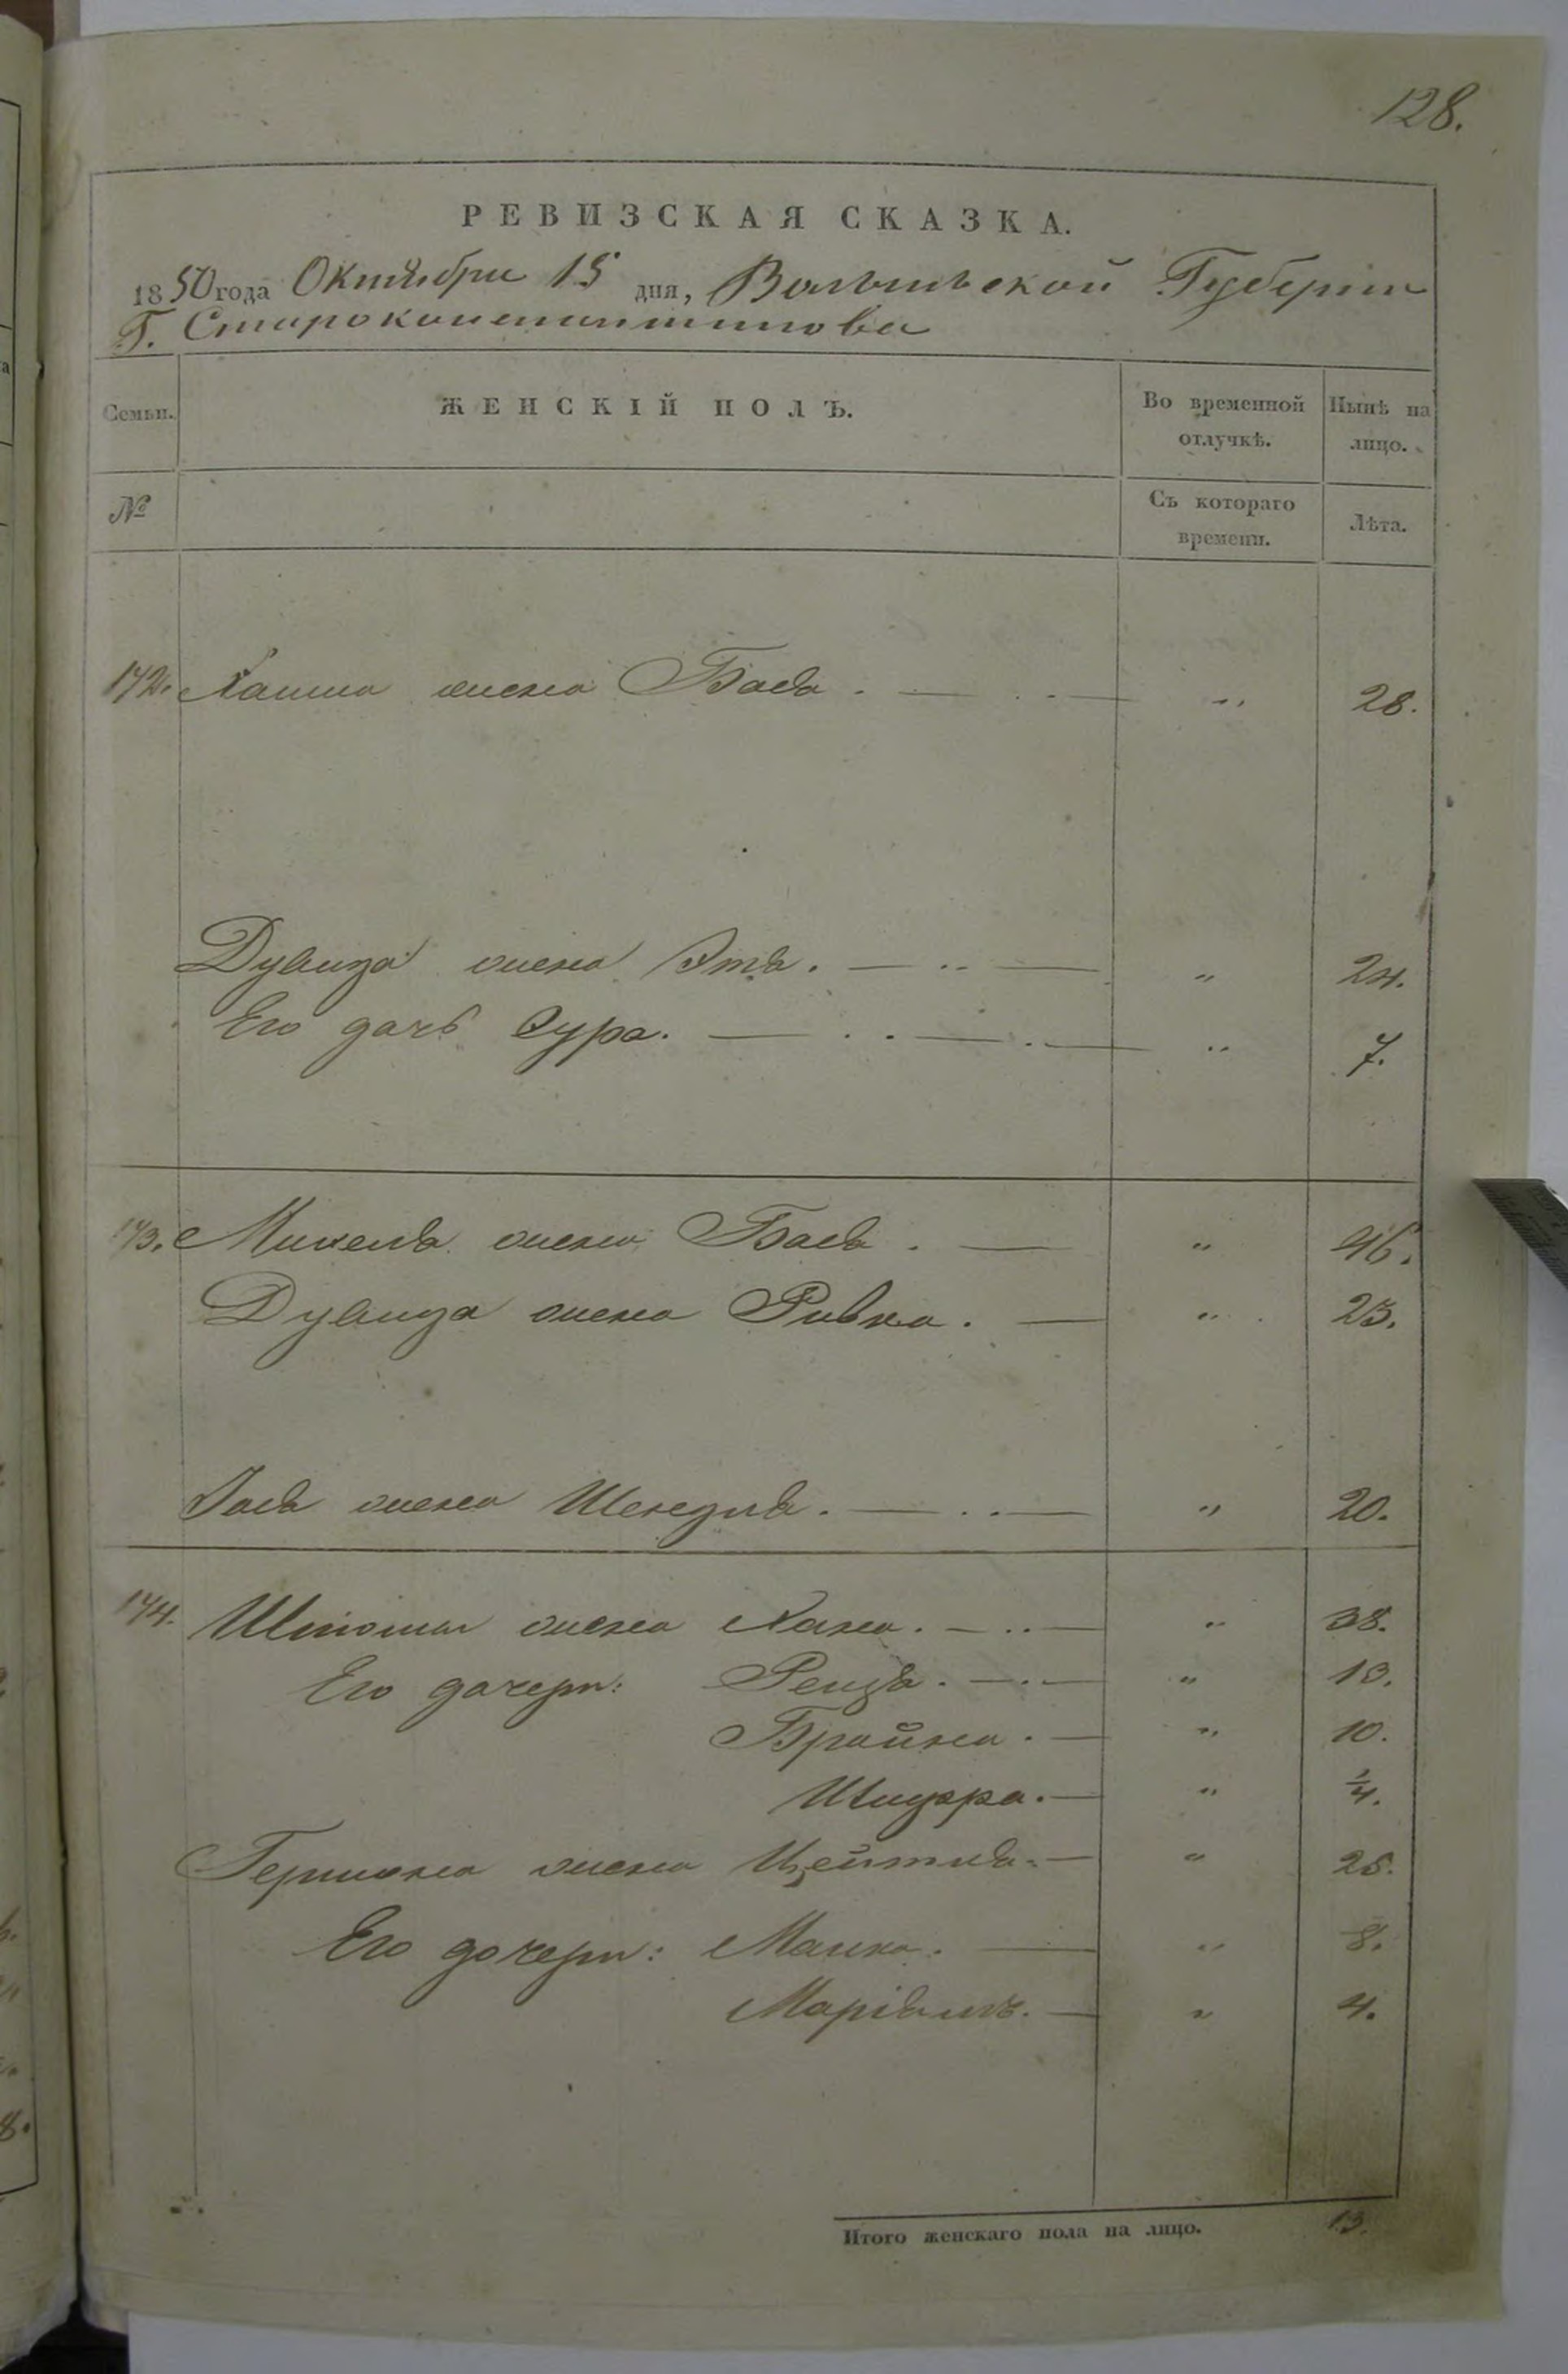 128.
РЕВИЗСКАЯ СКАЗКА.
1850 года Октября 15 дня, Волынской Губернии
Г. Староконстантинова
Семьи. ЖЕНСКІЙ ПОЛЪ. Во временной отлучкѣ. Нынѣ на лицо.
№ Съ котораго времени. Лѣта.
172. Хаима жена Бася. — „ 28.
Дувида жена Этя. — „ 24.
Его дочь Сура. — „ 7.
173. Михеля жена Бася. — „ 46.
Дувида жена Ривка. — „ 23.
жена Шендля. — „ 20.
174. жена Хана. — „ 38.
Его дочери: Рейзя. — „ 13.
Брайна. — „ 10.
Шифра. — „ ¼.
Гершона жена Цейтля. — „ 25.
Его дочери: Малка. — „ 8.
Маріямъ. — „ 4.
Итого женскаго пола на лицо. 13.